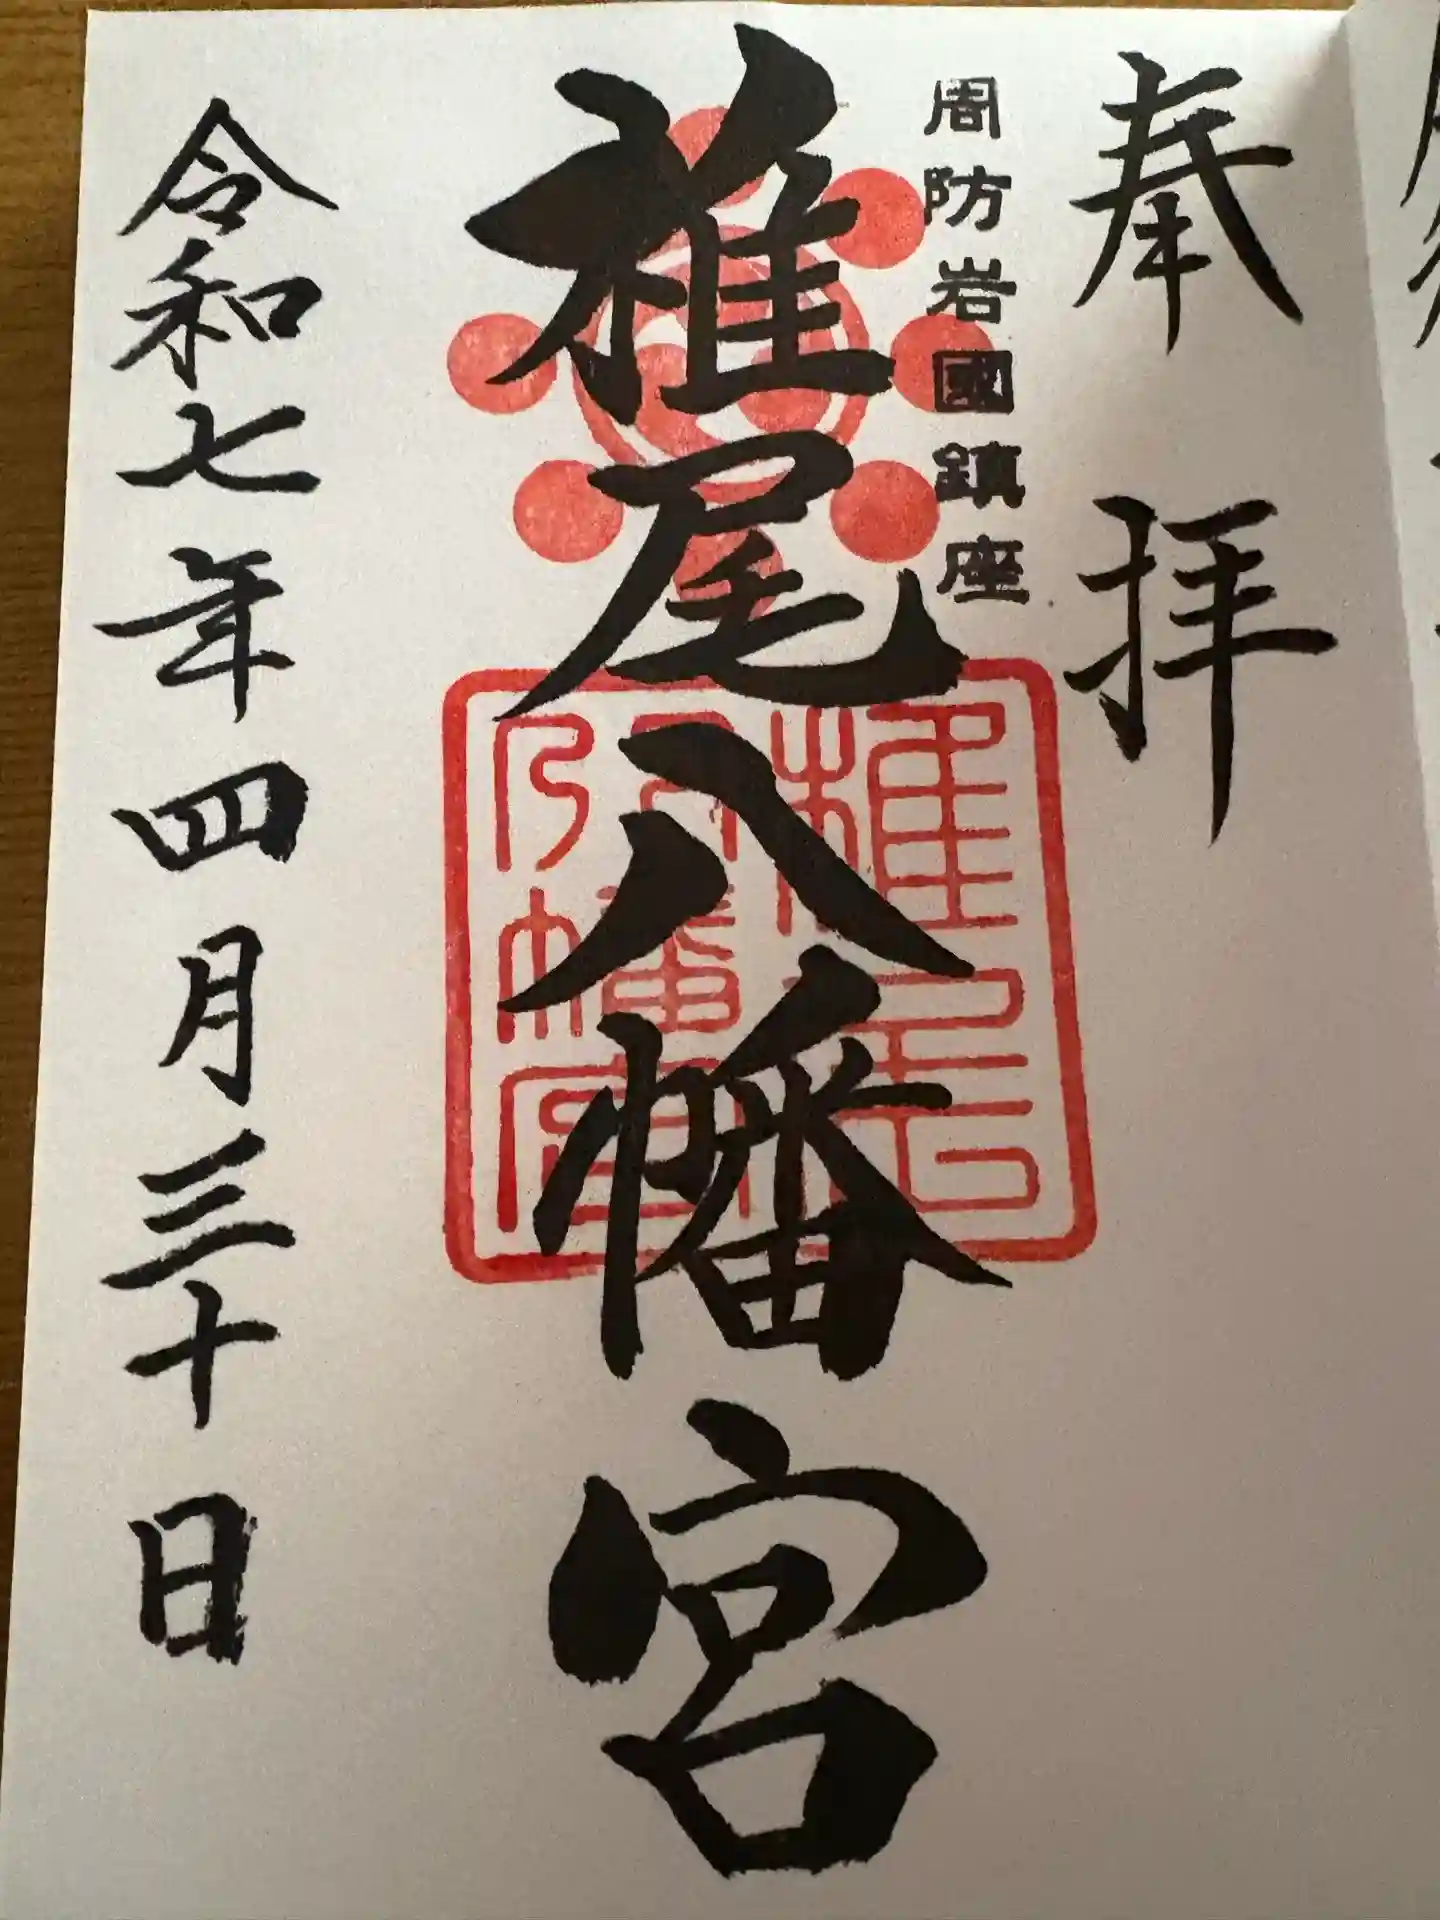 奉拝
周防岩國鎮座
椎尾八幡宮
椎尾
八幡宮
令和七年四月三十日